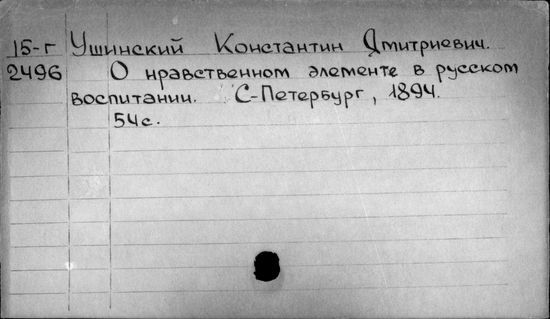 15-г Ушинский Константин Дмитриевич.
2496 О нравственном элементе в русском
воспитании. С-Петербург, 1894.
54с.